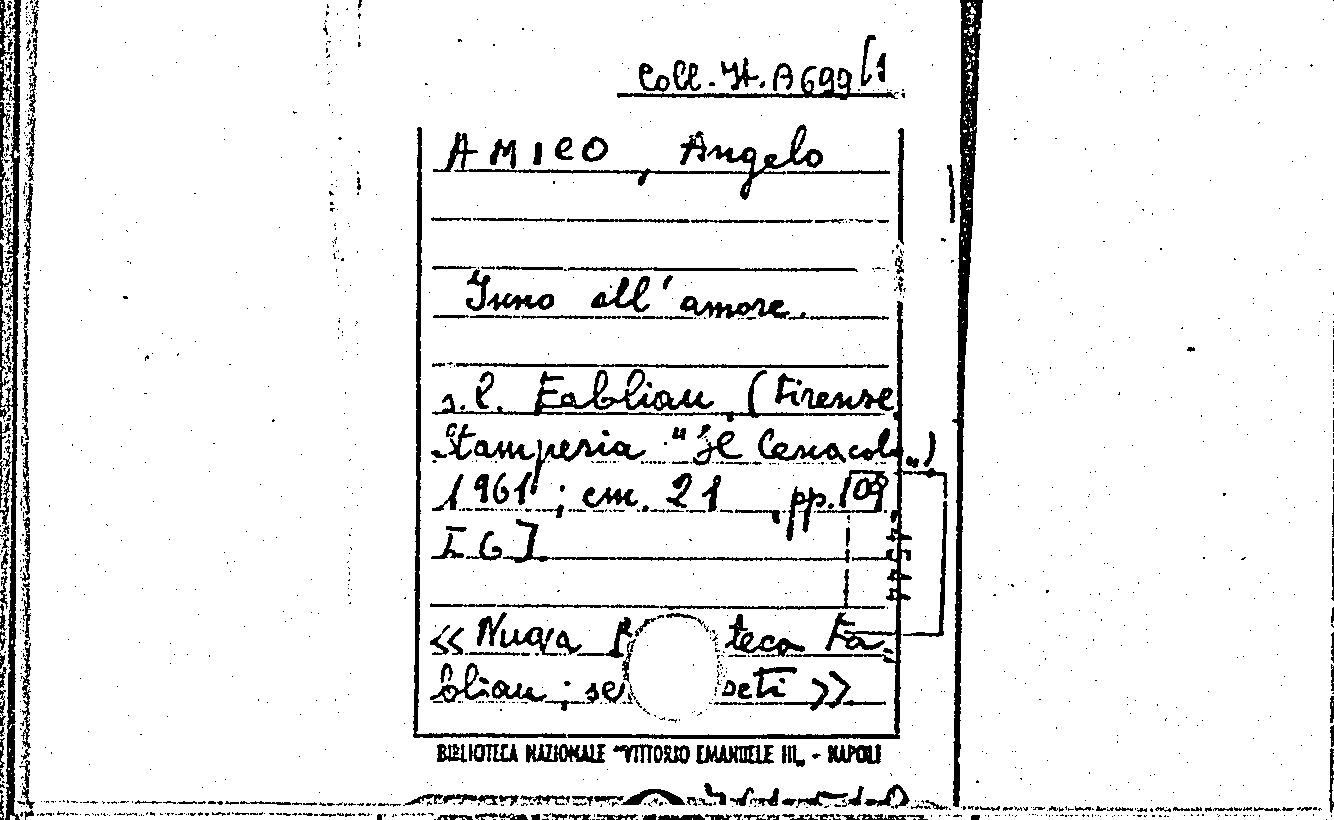 Coll. It. A 699 [1
AMICO, Angelo
Inno all'amore.
s.l. Fabliau, (Firenze,
Stamperia "Il Cenacolo")
1961; cm. 21, pp.
« Nuova teca Fa=
bliau; se »
BIBLIOTECA NAZIONALE "VITTORIO EMANUELE III" - NAPOLI